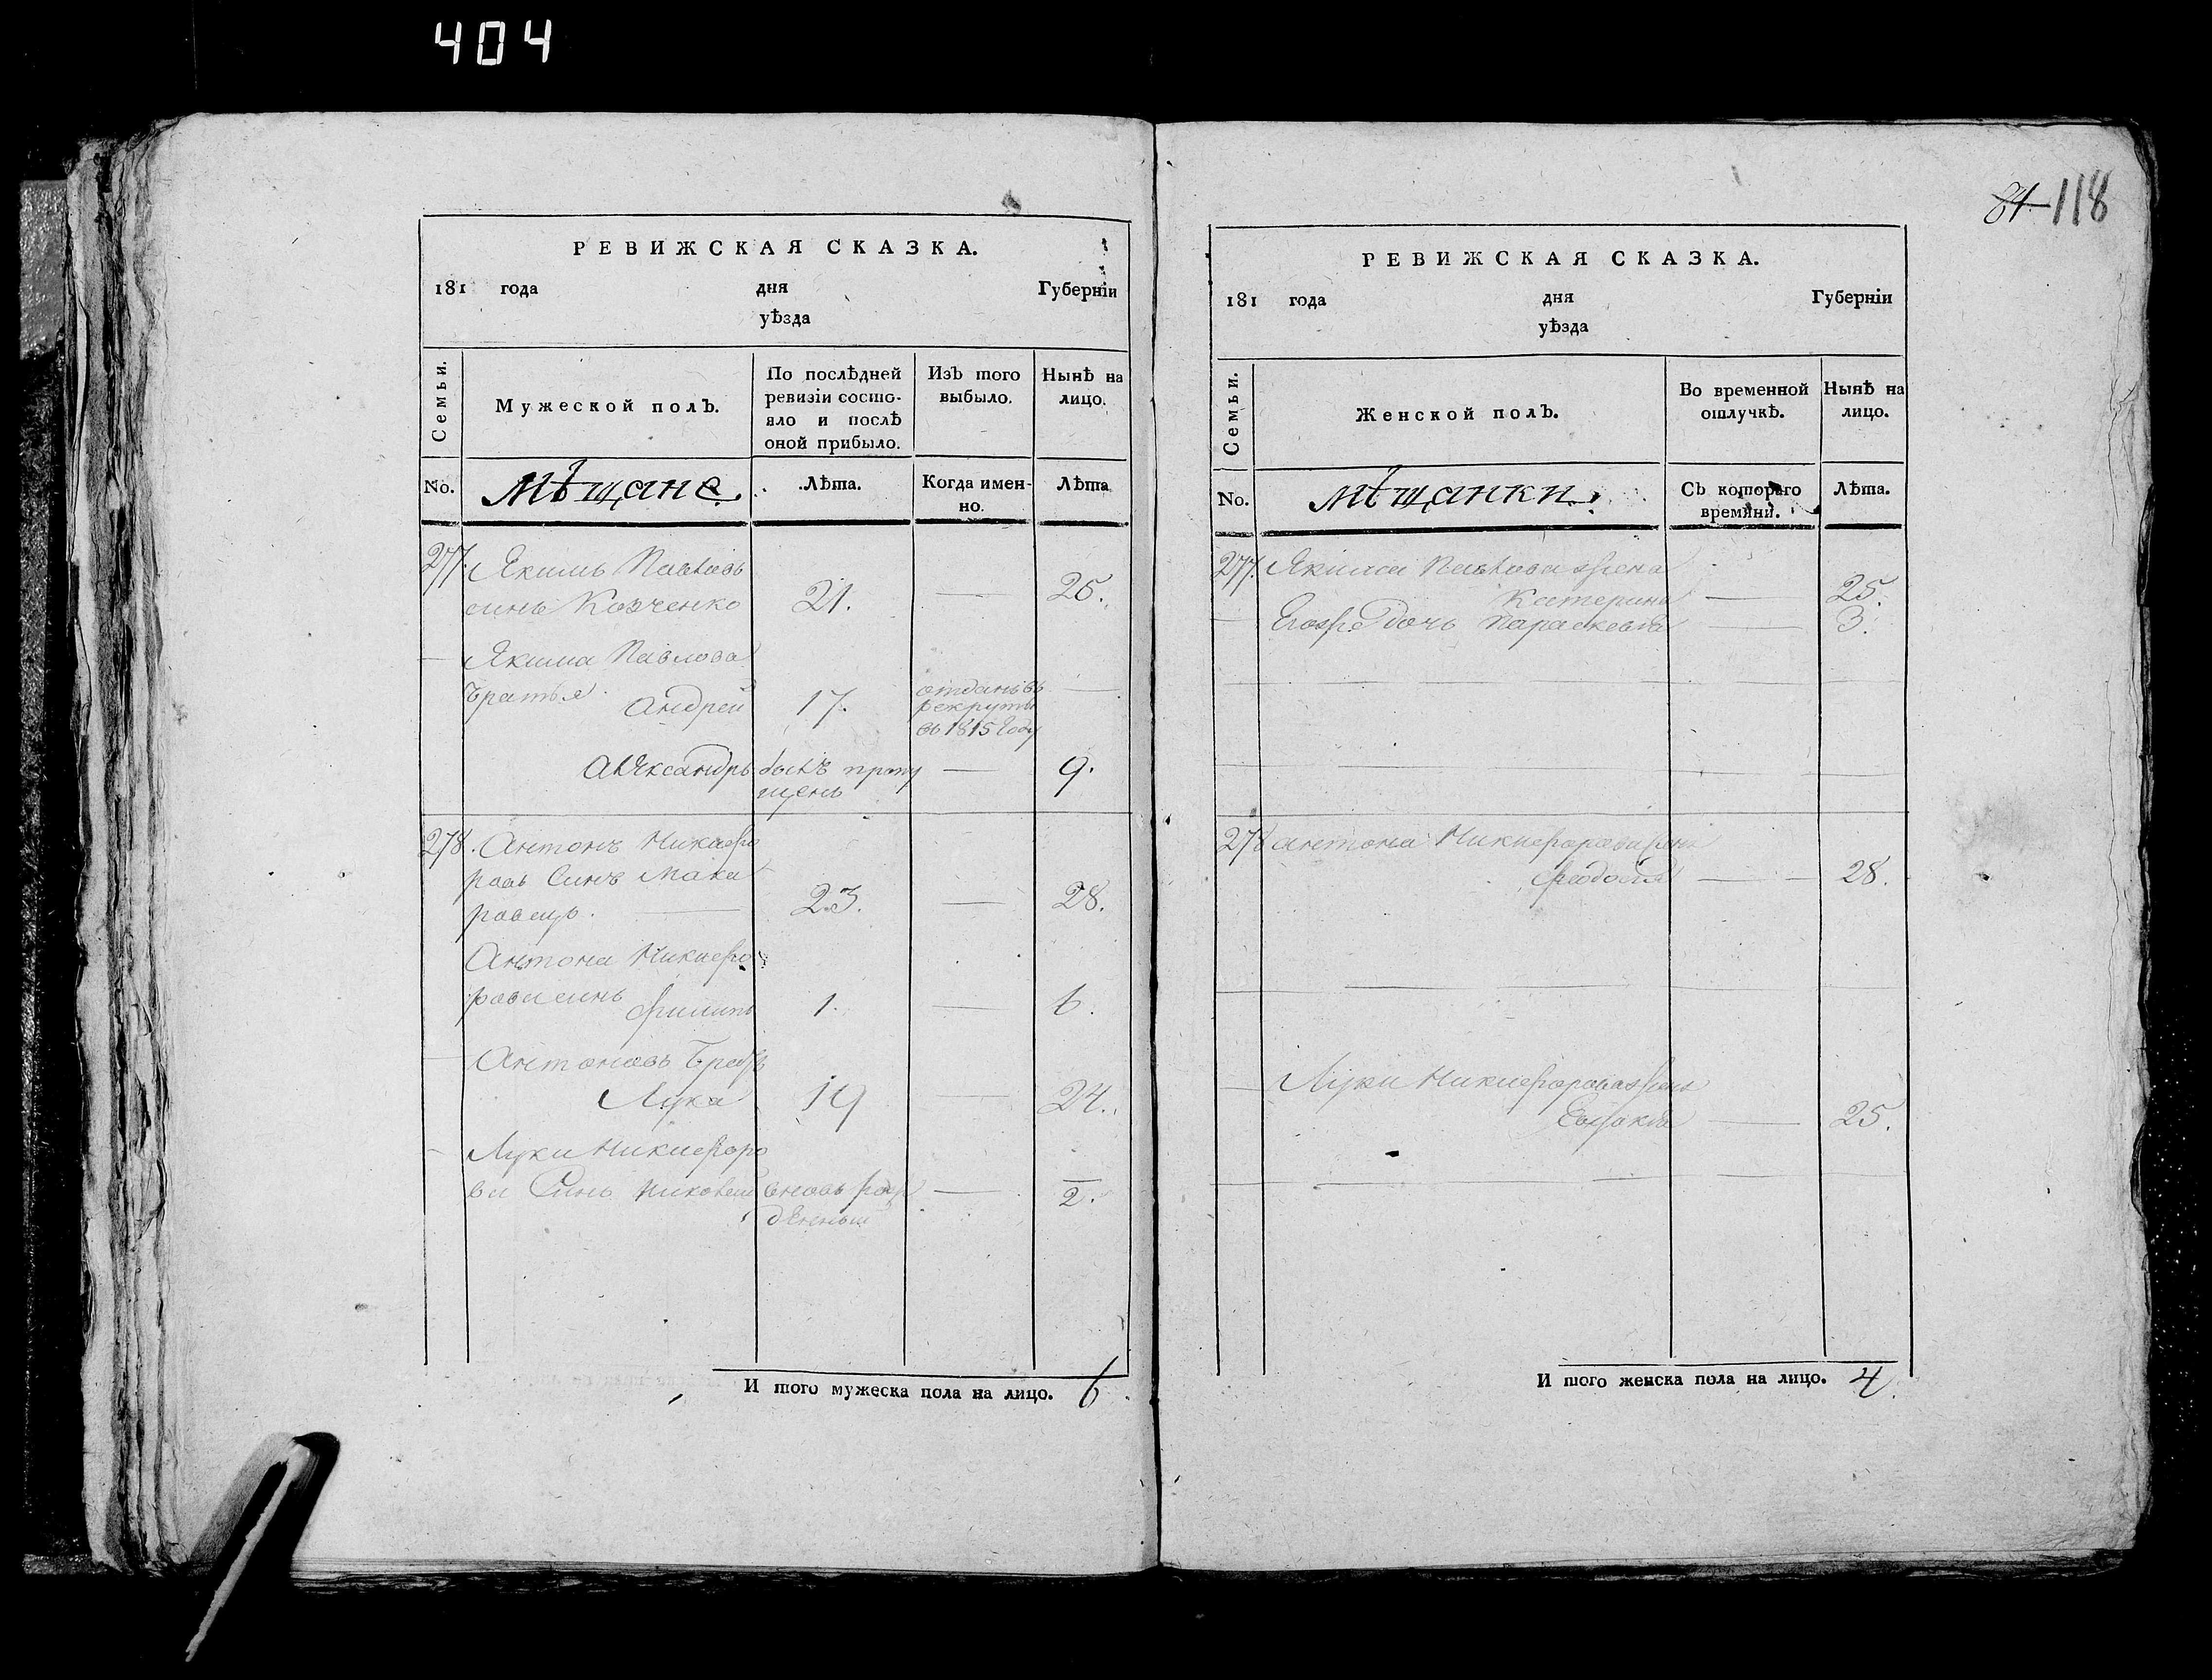 404
84 118
РЕВИЖСКАЯ СКАЗКА.
181 года дня Губерніи
уѣзда
Семьи.
Мужеской полъ.
По послѣдней
ревизіи состо-
яло и послѣ
оной прибыло.
Изъ того
выбыло.
Нынѣ на
лицо.
No.
Мѣщане.
Лѣта.
Когда имен-
но.
Лѣта
277. Якимъ Павловъ
синъ Ковченко 21. — 26.
— Якима Павлова
братья
Андрей 17. отданъ въ
рекруты
въ 1815 году —
Александръ былъ пропу
щенъ — 9.
278. Антонъ Никифо
ровъ Синъ Мака
ровецъ. 23. — 28.
Антона Никифо
рова синъ
Филипъ 1. — 6.
— Антоновъ братъ
Лука 19 — 24.
— Луки Никифоро
ва Синъ вновь рож
денный — 2.
И того мужеска пола на лицо. 6.
РЕВИЖСКАЯ СКАЗКА.
181 года дня Губерніи
уѣзда
Семьи.
Женской полъ.
Во временной
отлучкѣ.
Нынѣ на
лицо.
No.
мѣщанки.
Съ котораго
времяни.
Лѣта.
277. Якима Павлова жена
Катерина — 25.
— Егоже дочь Параскевия — 3.
278 антона Никифорова жена
Феодосия — 28.
— Луки Никифорова жена
25.
И того женска пола на лицо. 4.